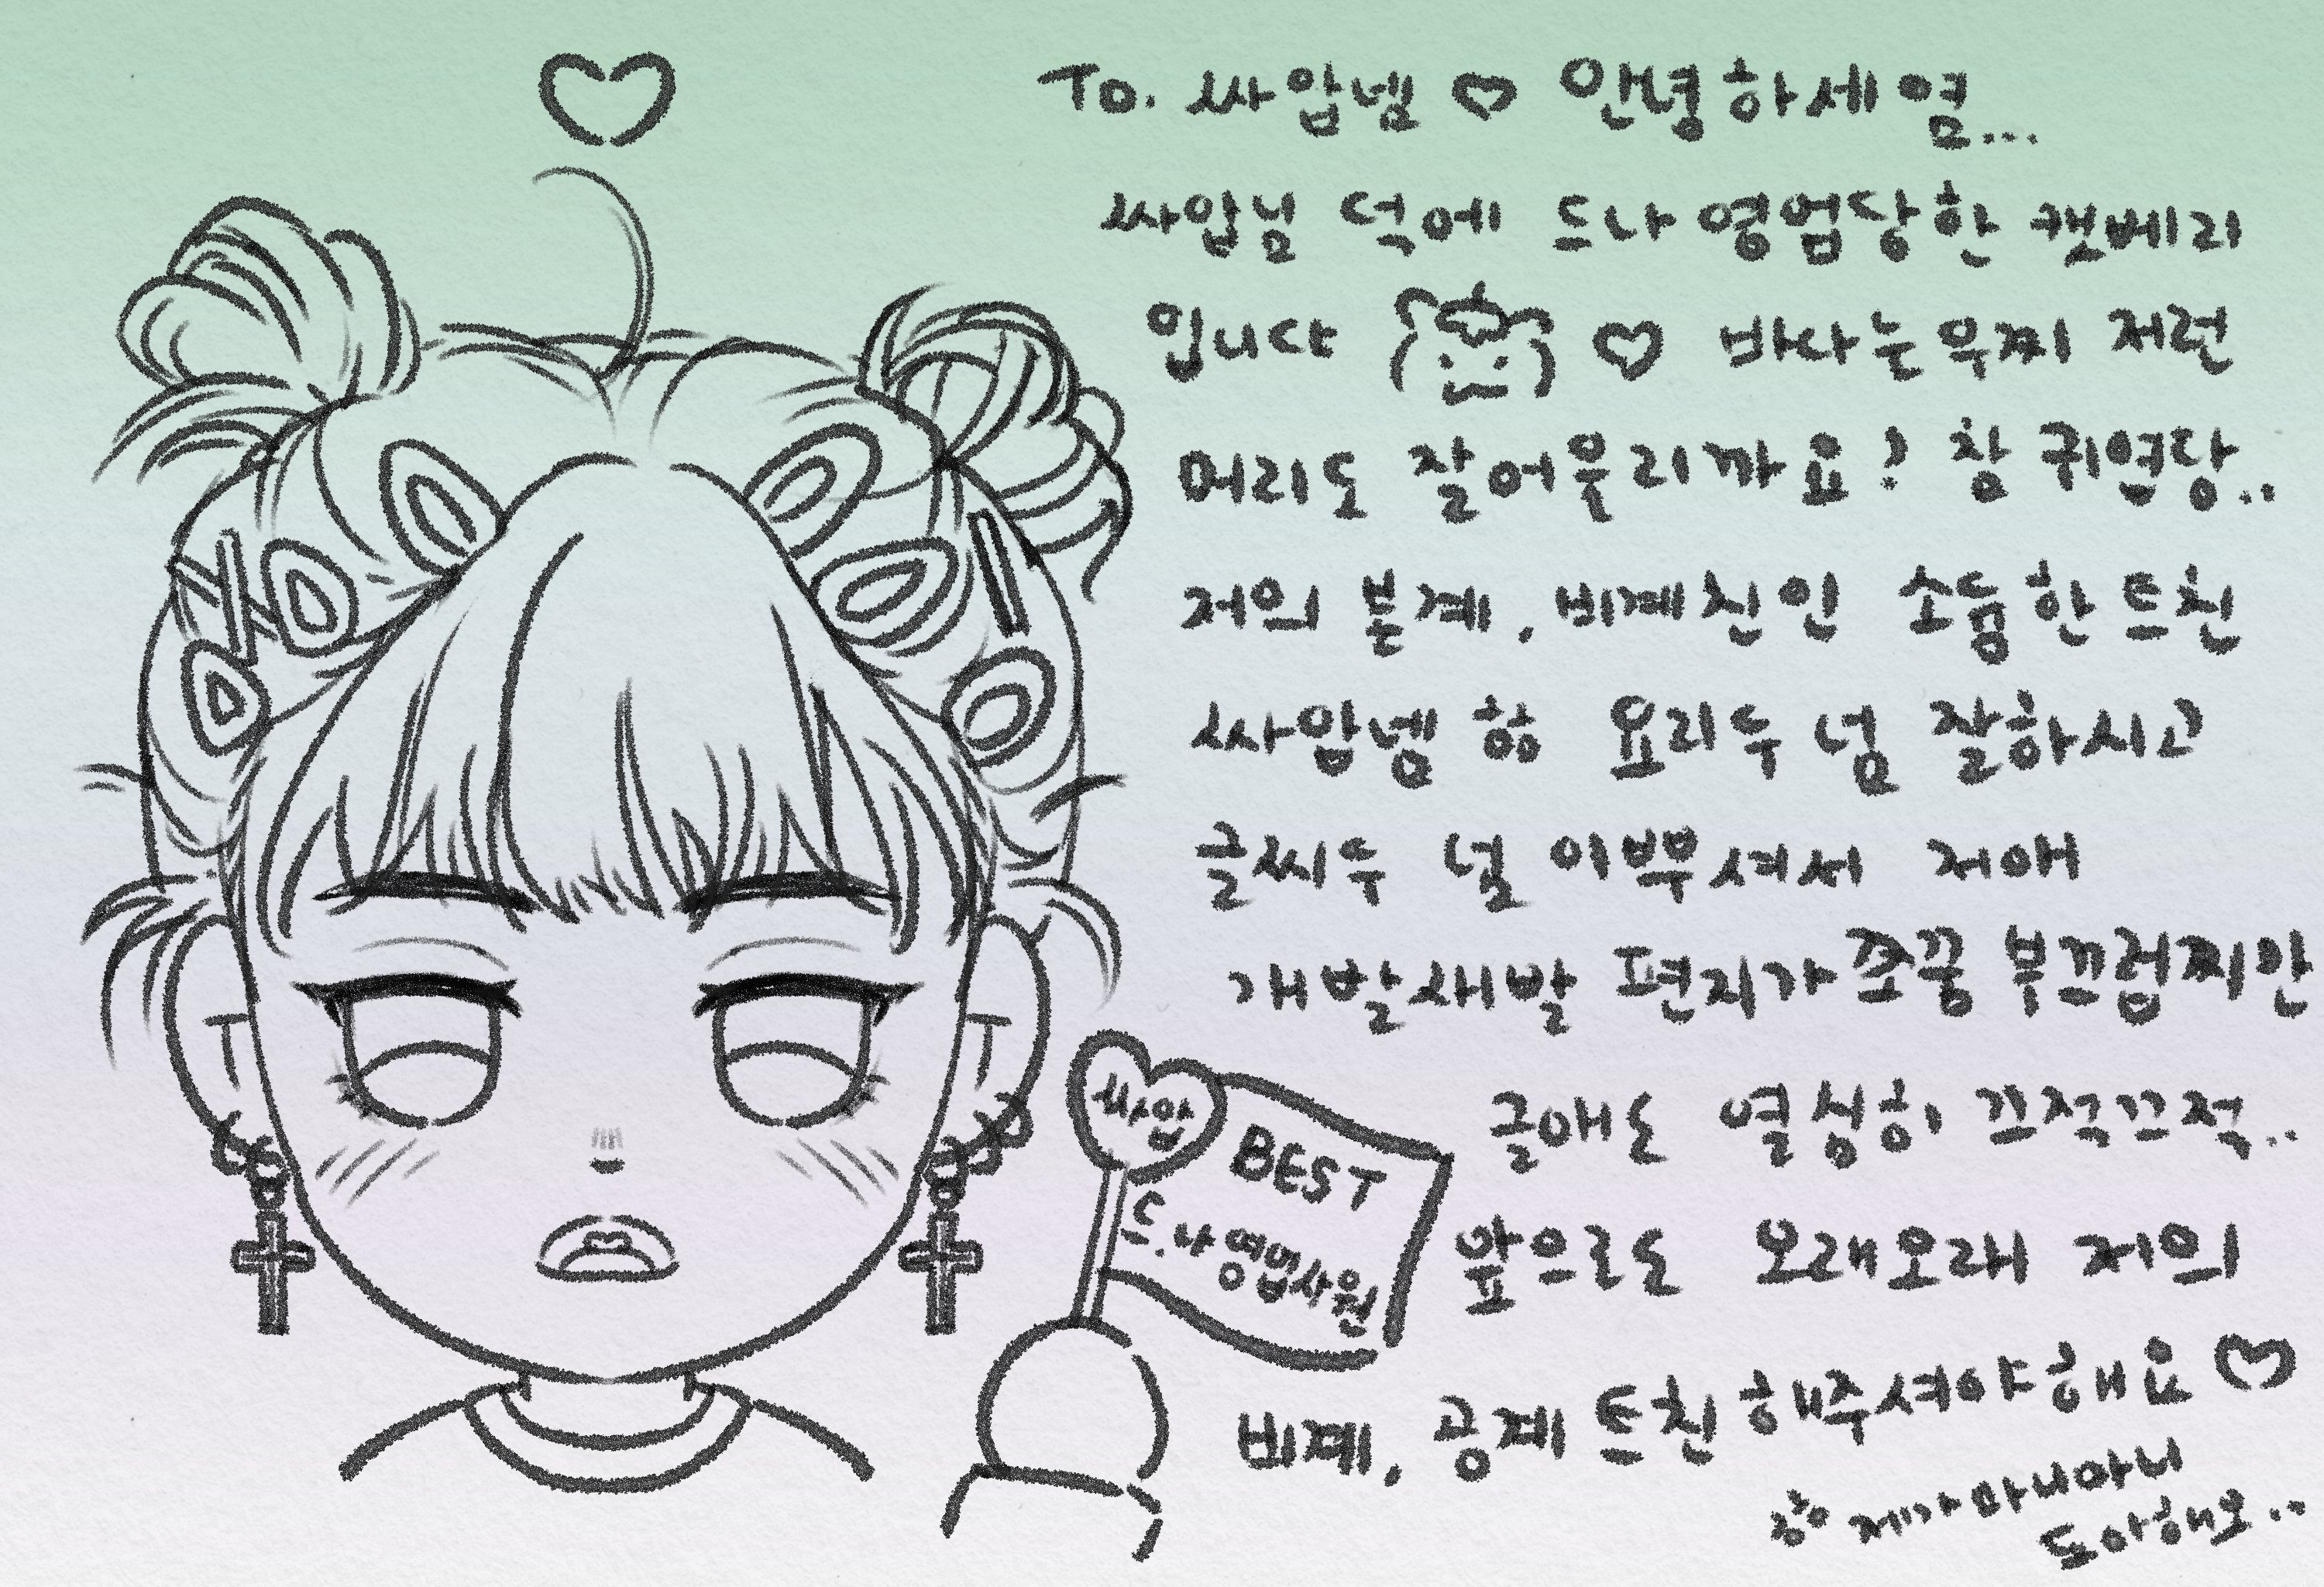 To. 싸압넴 ♡ 안녕하세염...
싸압님 덕에 드나 영업당한 캣베리
입니다 ♡ 바사는 우찌 저런
머리도 잘어우리까요? 참 귀엽당..
저의 본계, 비계친인 소듕한 트친
싸압넴 항 요리두 넘 잘하시고
글씨두 넘 이뿌셔서 저애
개발새발 편지가 쪼꿈 부끄럽찌만
글애도 열심히 끄적끄적..
싸압
BEST
드.나 영업사원
앞으로도 오래오래 저의
비계, 공계 트친 해주셔야해요 ♡
항 제가 마니마니
도아해오..